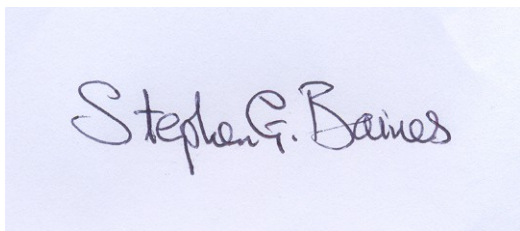 Stephen G. Baines